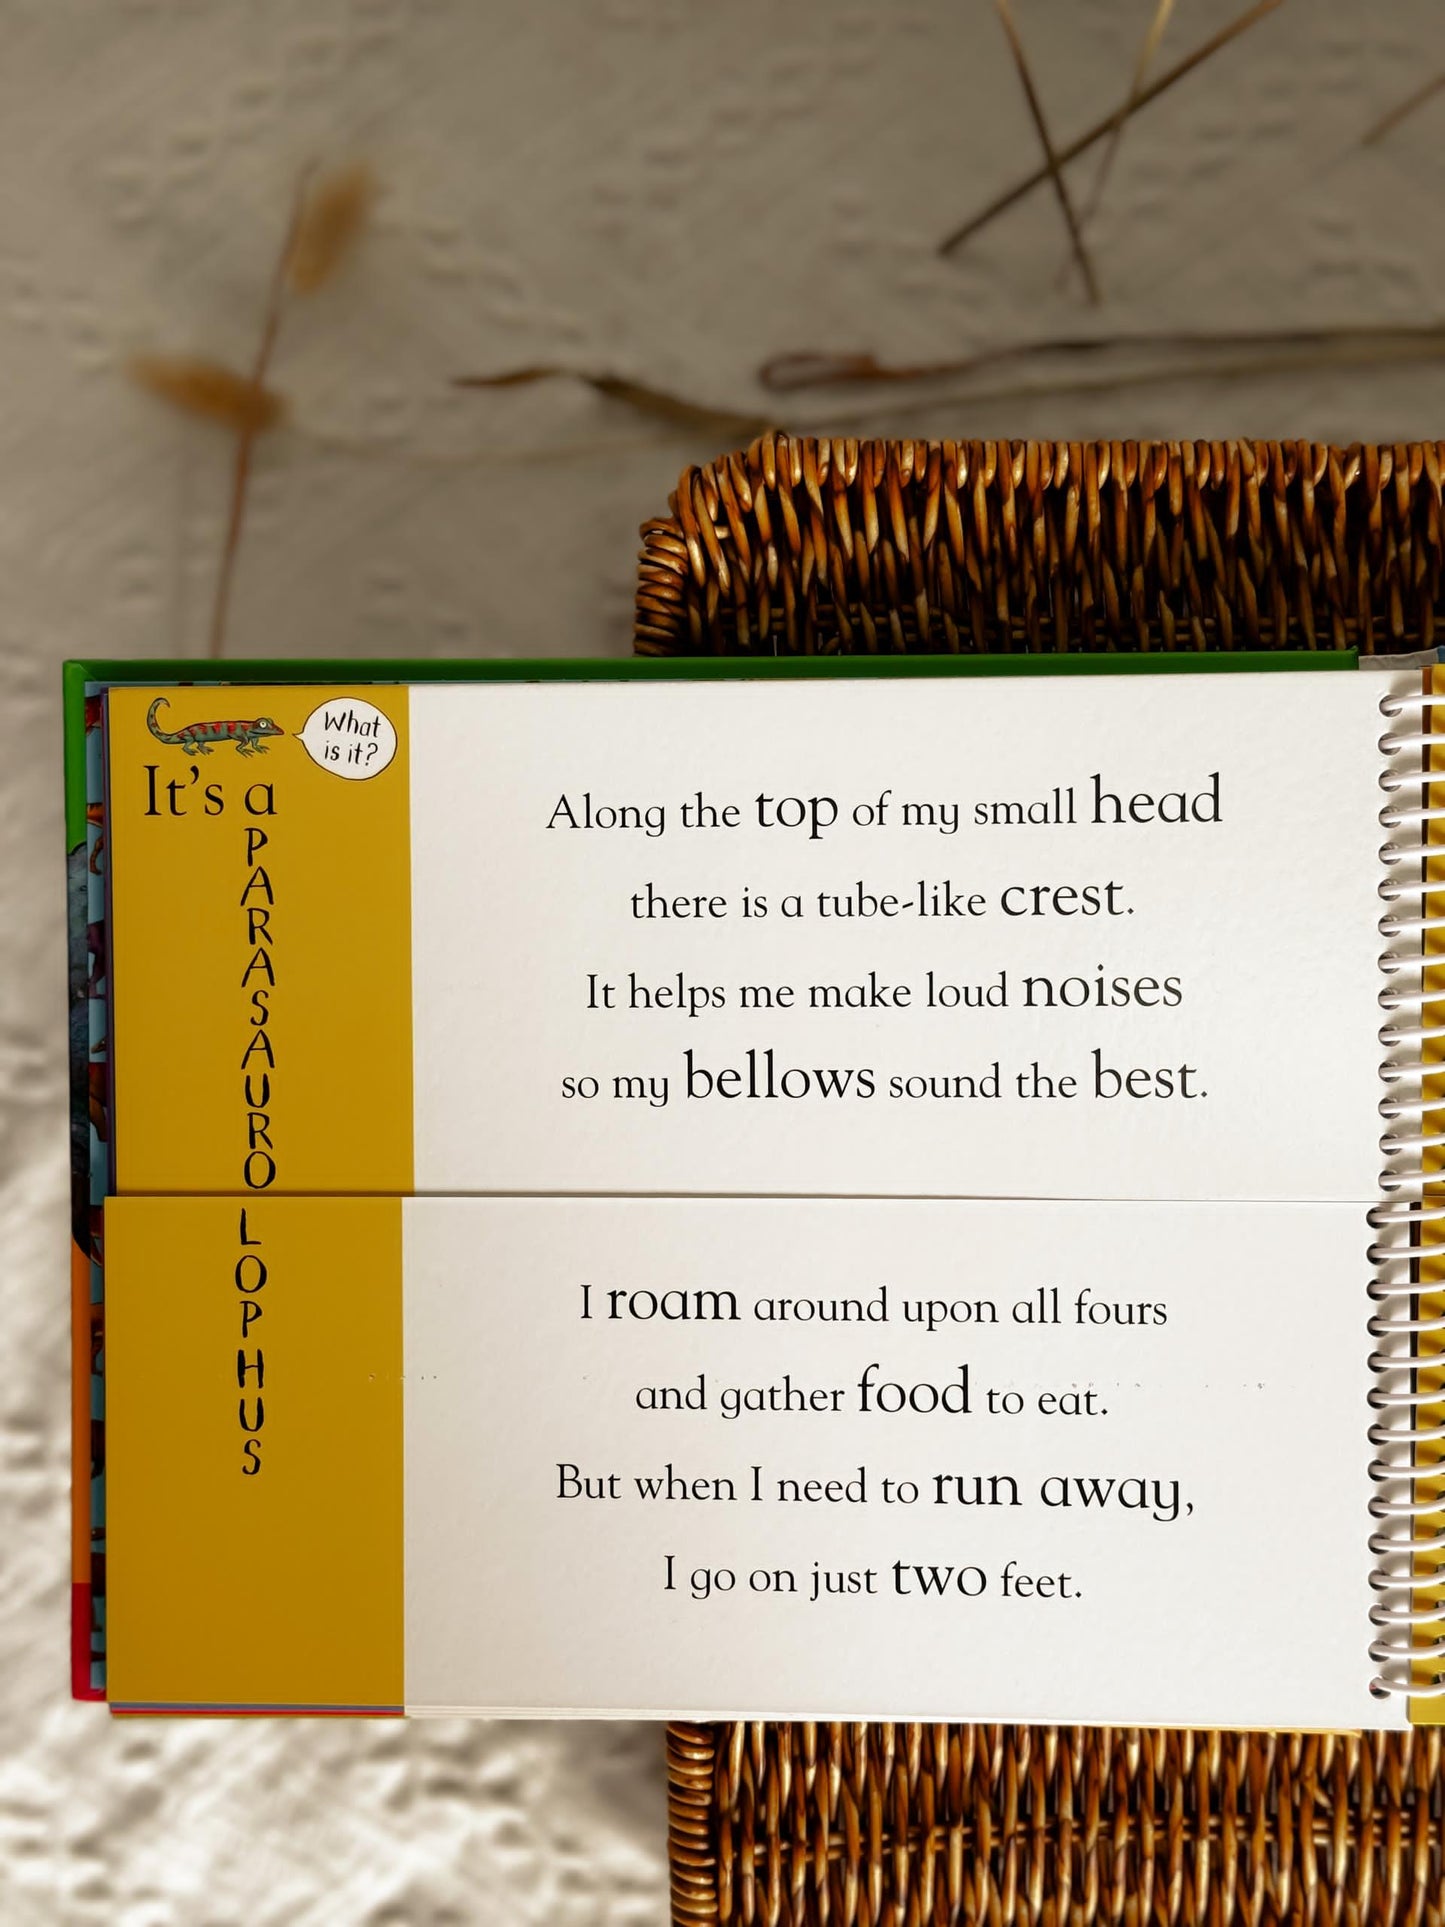 What
is it?
It's a
PARASAURO
LOPHUS
Along the top of my small head
there is a tube-like crest.
It helps me make loud noises
so my bellows sound the best.
I roam around upon all fours
and gather food to eat.
But when I need to run away,
I go on just two feet.